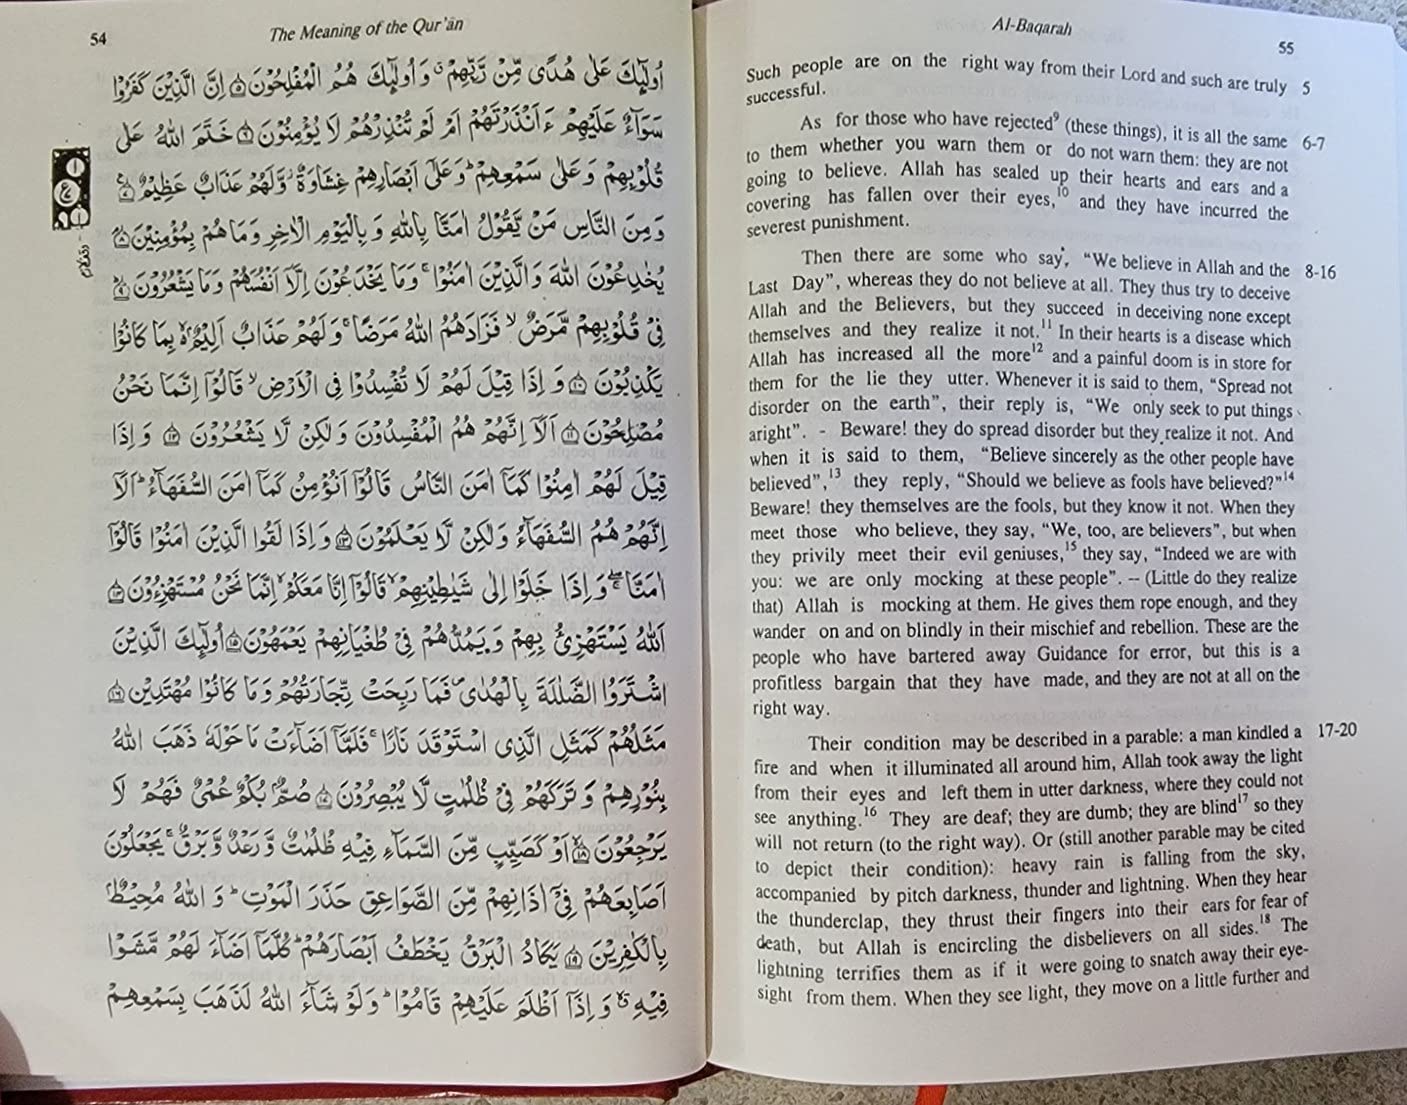 54
The Meaning of the Qur'ān
أُولٰٓئِكَ عَلٰى هُدًى مِّنْ رَّبِّهِمْ ۙ وَاُولٰٓئِكَ هُمُ الْمُفْلِحُوْنَ ۝٥ اِنَّ الَّذِيْنَ كَفَرُوْا
سَوَآءٌ عَلَيْهِمْ ءَاَنْذَرْتَهُمْ اَمْ لَمْ تُنْذِرْهُمْ لَا يُؤْمِنُوْنَ ۝٦ خَتَمَ اللهُ عَلٰى
قُلُوْبِهِمْ وَعَلٰى سَمْعِهِمْ ؕ وَعَلٰٓى اَبْصَارِهِمْ غِشَاوَةٌ ۫ وَّلَهُمْ عَذَابٌ عَظِيْمٌ ۝٧
وَمِنَ النَّاسِ مَنْ يَّقُوْلُ اٰمَنَّا بِاللهِ وَ بِالْيَوْمِ الْاٰخِرِ وَمَا هُمْ بِمُؤْمِنِيْنَ ۝٨
يُخٰدِعُوْنَ اللهَ وَالَّذِيْنَ اٰمَنُوْا ۚ وَمَا يَخْدَعُوْنَ اِلَّآ اَنْفُسَهُمْ وَمَا يَشْعُرُوْنَ ۝٩
فِيْ قُلُوْبِهِمْ مَّرَضٌ ۙ فَزَادَهُمُ اللهُ مَرَضًا ۚ وَلَهُمْ عَذَابٌ اَلِيْمٌ ۢ ۙ بِمَا كَانُوْا
يَكْذِبُوْنَ ۝١٠ وَ اِذَا قِيْلَ لَهُمْ لَا تُفْسِدُوْا فِى الْاَرْضِ ۙ قَالُوْٓا اِنَّمَا نَحْنُ
مُصْلِحُوْنَ ۝١١ اَلَآ اِنَّهُمْ هُمُ الْمُفْسِدُوْنَ وَلٰكِنْ لَّا يَشْعُرُوْنَ ۝١٢ وَ اِذَا
قِيْلَ لَهُمْ اٰمِنُوْا كَمَآ اٰمَنَ النَّاسُ قَالُوْٓا اَنُؤْمِنُ كَمَآ اٰمَنَ السُّفَهَآءُ ؕ اَلَآ
اِنَّهُمْ هُمُ السُّفَهَآءُ وَلٰكِنْ لَّا يَعْلَمُوْنَ ۝١٣ وَ اِذَا لَقُوا الَّذِيْنَ اٰمَنُوْا قَالُوْٓا
اٰمَنَّا ۚۖ وَ اِذَا خَلَوْا اِلٰى شَيٰطِيْنِهِمْ ۙ قَالُوْٓا اِنَّا مَعَكُمْ ۙ اِنَّمَا نَحْنُ مُسْتَهْزِءُوْنَ ۝١٤
اَللهُ يَسْتَهْزِئُ بِهِمْ وَ يَمُدُّهُمْ فِيْ طُغْيَانِهِمْ يَعْمَهُوْنَ ۝١٥ اُولٰٓئِكَ الَّذِيْنَ
اشْتَرَوُا الضَّلٰلَةَ بِالْهُدٰى ۪ فَمَا رَبِحَتْ تِّجَارَتُهُمْ وَمَا كَانُوْا مُهْتَدِيْنَ ۝١٦
مَثَلُهُمْ كَمَثَلِ الَّذِى اسْتَوْقَدَ نَارًا ۚ فَلَمَّآ اَضَآءَتْ مَا حَوْلَهٗ ذَهَبَ اللهُ
بِنُوْرِهِمْ وَ تَرَكَهُمْ فِيْ ظُلُمٰتٍ لَّا يُبْصِرُوْنَ ۝١٧ صُمٌّۢ بُكْمٌ عُمْيٌ فَهُمْ لَا
يَرْجِعُوْنَ ۝١٨ اَوْ كَصَيِّبٍ مِّنَ السَّمَآءِ فِيْهِ ظُلُمٰتٌ وَّرَعْدٌ وَّبَرْقٌ ۚ يَجْعَلُوْنَ
اَصَابِعَهُمْ فِيْٓ اٰذَانِهِمْ مِّنَ الصَّوَاعِقِ حَذَرَ الْمَوْتِ ؕ وَ اللهُ مُحِيْطٌۢ
بِالْكٰفِرِيْنَ ۝١٩ يَكَادُ الْبَرْقُ يَخْطَفُ اَبْصَارَهُمْ ؕ كُلَّمَآ اَضَآءَ لَهُمْ مَّشَوْا
فِيْهِ ۙ وَ اِذَآ اَظْلَمَ عَلَيْهِمْ قَامُوْا ؕ وَلَوْ شَآءَ اللهُ لَذَهَبَ بِسَمْعِهِمْ
Al-Baqarah
55
Such people are on the right way from their Lord and such are truly 5
successful.
As for those who have rejected⁹ (these things), it is all the same 6-7
to them whether you warn them or do not warn them: they are not
going to believe. Allah has sealed up their hearts and ears and a
covering has fallen over their eyes,¹⁰ and they have incurred the
severest punishment.
Then there are some who say, "We believe in Allah and the 8-16
Last Day", whereas they do not believe at all. They thus try to deceive
Allah and the Believers, but they succeed in deceiving none except
themselves and they realize it not.¹¹ In their hearts is a disease which
Allah has increased all the more¹² and a painful doom is in store for
them for the lie they utter. Whenever it is said to them, "Spread not
disorder on the earth", their reply is, "We only seek to put things
aright". - Beware! they do spread disorder but they realize it not. And
when it is said to them, "Believe sincerely as the other people have
believed",¹³ they reply, "Should we believe as fools have believed?"¹⁴
Beware! they themselves are the fools, but they know it not. When they
meet those who believe, they say, "We, too, are believers", but when
they privily meet their evil geniuses,¹⁵ they say, "Indeed we are with
you: we are only mocking at these people". -- (Little do they realize
that) Allah is mocking at them. He gives them rope enough, and they
wander on and on blindly in their mischief and rebellion. These are the
people who have bartered away Guidance for error, but this is a
profitless bargain that they have made, and they are not at all on the
right way.
Their condition may be described in a parable: a man kindled a 17-20
fire and when it illuminated all around him, Allah took away the light
from their eyes and left them in utter darkness, where they could not
see anything.¹⁶ They are deaf; they are dumb; they are blind¹⁷ so they
will not return (to the right way). Or (still another parable may be cited
to depict their condition): heavy rain is falling from the sky,
accompanied by pitch darkness, thunder and lightning. When they hear
the thunderclap, they thrust their fingers into their ears for fear of
death, but Allah is encircling the disbelievers on all sides.¹⁸ The
lightning terrifies them as if it were going to snatch away their eye-
sight from them. When they see light, they move on a little further and